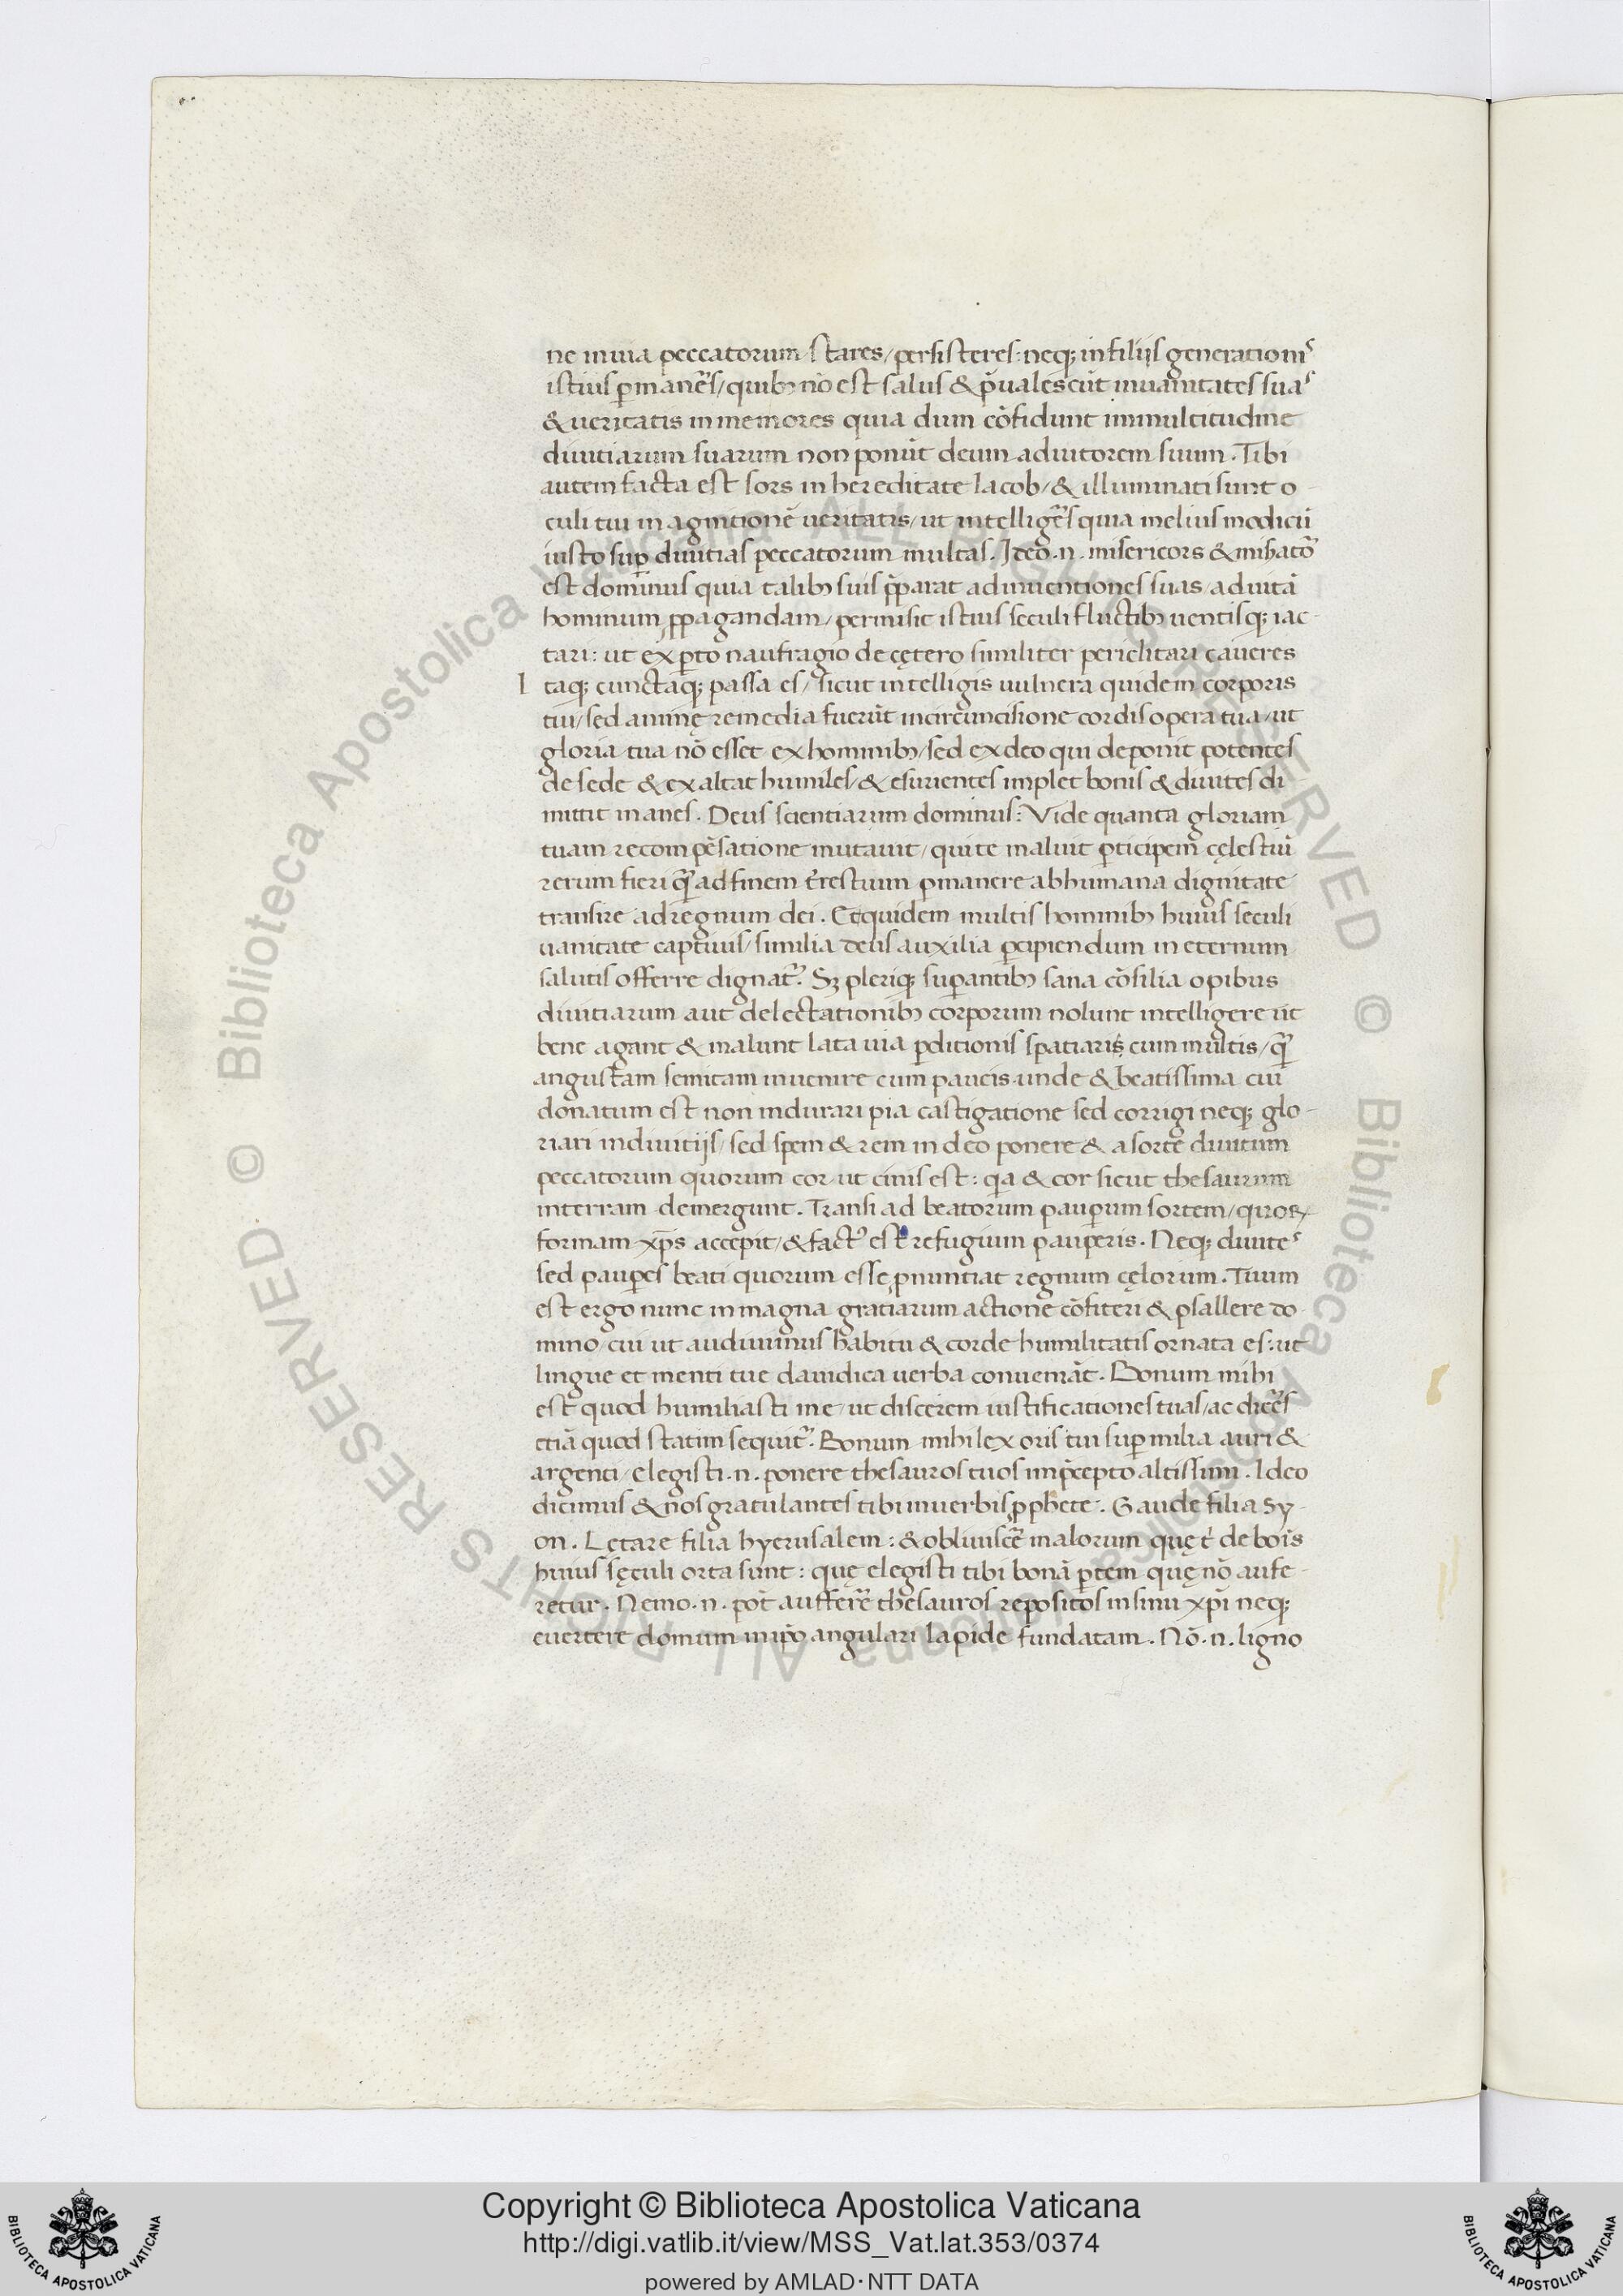 ne in uia peccatorum stares/ persisteres: neq; in filijs generationis
istius ꝑmanēs/ quibꝫ nō est salus & p̄ualescūt in uanitates suas
& ueritatis inmemores quia dum cōfidunt in multitudine
diuitiarum suarum non ponūt deum adiutorem suum. Tibi
autem facta est sors in hereditate Iacob/ & illuminati sunt o
culi tui in agnitionē ueritatis/ ut intelligēs quia melius modicū
iusto suꝑ diuitias peccatorum multas. Ideo .n. misericors &
est dominus quia talibꝫ suis p̄parat adinuentiones suas/ ad uitā
hominum ꝓpagandam/ permisit istius seculi fluctibꝫ uentisq; iac-
tari: ut exꝑto naufragio de cętero similiter periclitari caueres
Itaq; cunctaq; passa es/ sicut intelligis uulnera quidem corporis
tui/ sed animę remedia fuerūt in circūncisione cordis opera tua/ ut
gloria tua nō esset ex hominibꝫ/ sed ex deo qui deponit potentes
de sede & exaltat humiles/ & esurientes implet bonis & diuites di-
mittit inanes. Deus scientiarum dominus: Vide quanta gloriam
tuam recompēsatione mutauit/ qui te maluit ꝑticipem cęlestiū
rerum fieri quā ad finem t̄restium ꝑmanere ab humana dignitate
transire ad regnum dei. Et quidem multis hominibꝫ huius seculi
uanitate captiuis/ similia deus auxilia ꝑcipiendum in eternum
salutis offerre dignat᷑. Sꝫ pleriq; suꝑantibꝫ sana cōsilia opibus
diuitiarum aut delectationibꝫ corporum nolunt intelligere ut
bene agant & malunt lata uia ꝑditionis spatiaris cum multis/ quā
angustam semitam inuenire cum paucis unde & beatissima cui
donatum est non indurari pia castigatione sed corrigi neq; glo-
riari in diuitijs/ sed spem & rem in deo ponere & a sorte diuitum
peccatorum quorum cor ut cinis est: qa & cor sicut thesaurum
in terram demergunt. Transi ad beatorum pauꝑum sortem/ quoꝝ
formam xp̄s accepit/ & fact᾽ est refugium pauperis. Neq; diuites
sed pauꝑes beati quorum esse ꝓnuntiat regnum cęlorum. Tuum
est ergo nunc in magna gratiarum actione cōfiteri & psallere do-
mino/ cui ut audiuimus habitu & corde humilitatis ornata es: ut
lingue et menti tue dauidica uerba conueniāt. Bonum mihi
est quod humiliasti me/ ut discerem iustificationes tuas/ ac dicēs
etiā quod statim sequit᷑. Bonum mihi lex oris tui suꝑ milia auri &
argenti/ elegisti .n. ponere thesauros tuos in p̄cepto altissimi. Ideo
dicimus & nos gratulantes tibi in uerbis ꝓphete. Gaude filia Sy-
on. Letare filia hyerusalem: & obliuiscē malorum quę t' de bōis
huius sęculi orta sunt: quę elegisti tibi bonā ꝑtem quę nō aufe-
retur. Nemo .n. pōt aufferre thesauros repositos in sinu xp̄i neq;
euertere domum in ip̄o angulari lapide fundatam. Nō .n. ligno
Copyright © Biblioteca Apostolica Vaticana
http://digi.vatlib.it/view/MSS_Vat.lat.353/0374
powered by AMLAD · NTT DATA
BIBLIOTECA APOSTOLICA VATICANA
BIBLIOTECA APOSTOLICA VATICANA
© Biblioteca Apostolica Vaticana ALL RIGHTS RESERVED
© Biblioteca Apostolica Vaticana ALL RIGHTS RESERVED